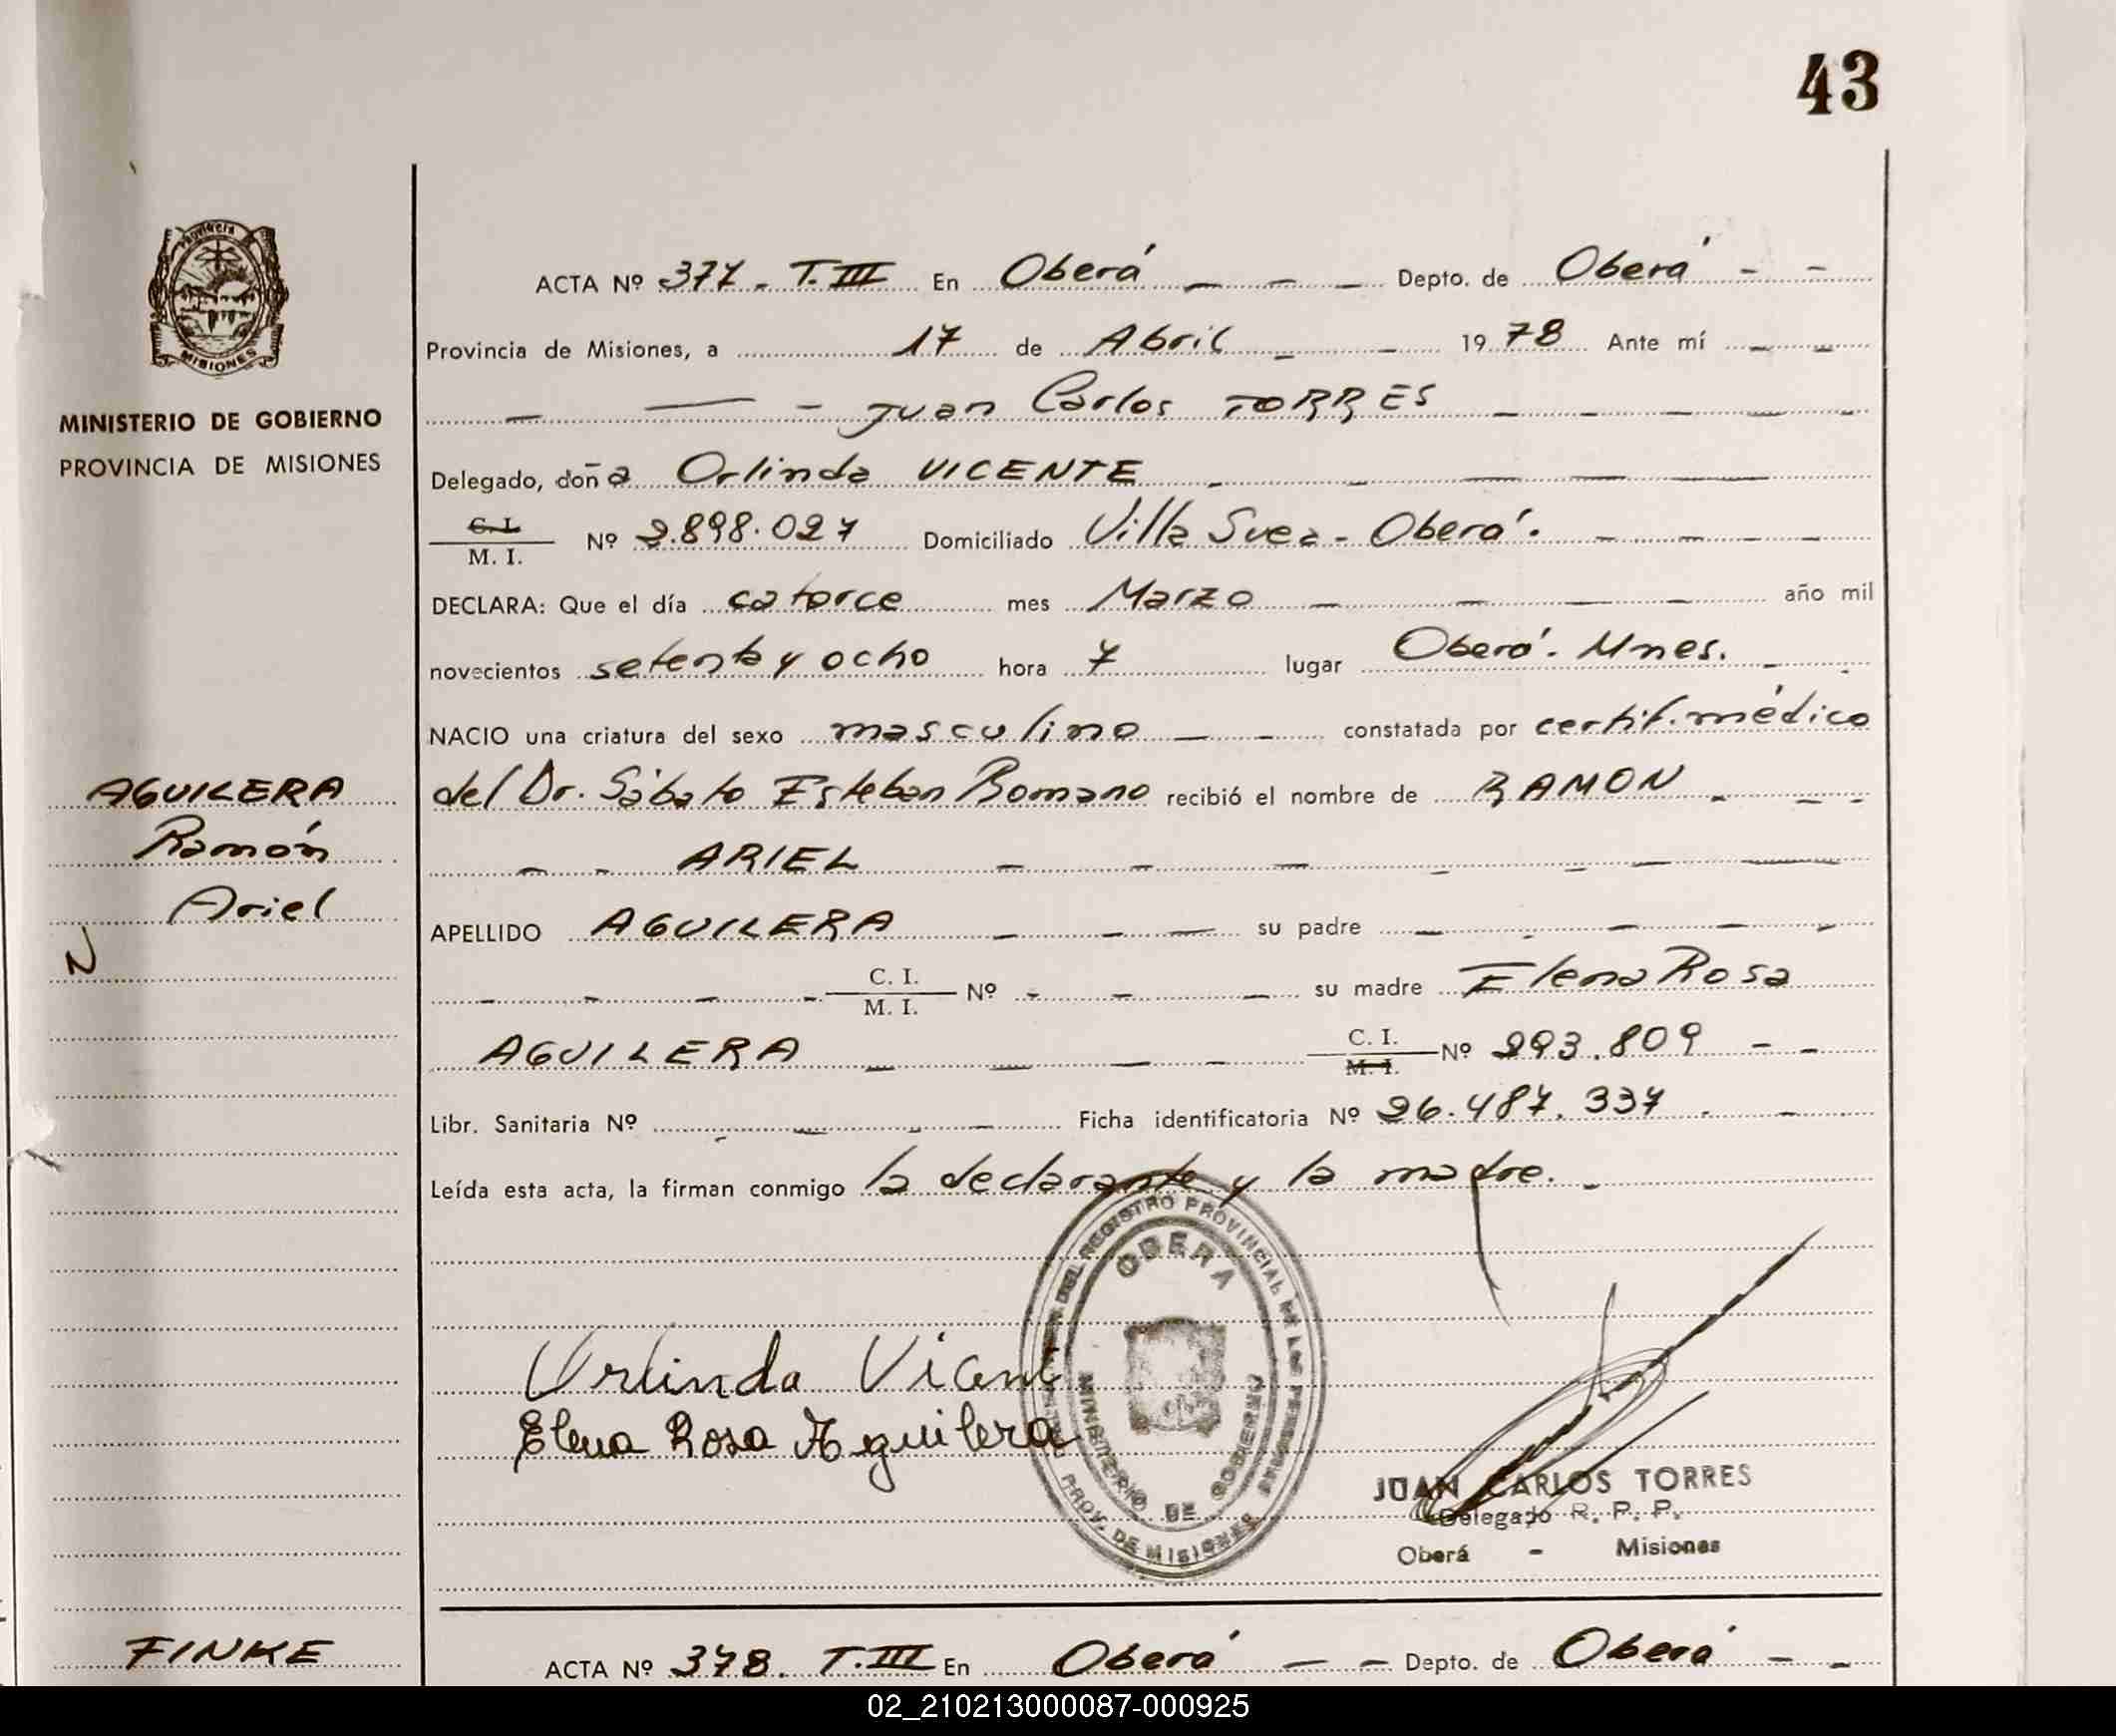 43
PROVINCIA
MISIONES
MINISTERIO DE GOBIERNO
PROVINCIA DE MISIONES
ACTA Nº 377 - T. III En Oberá Depto. de Oberá
Provincia de Misiones, a 17 de Abril 1978 Ante mí
Juan Carlos TORRES
Delegado, doña Orlinda VICENTE
C. I.
M. I. Nº 2.898.027 Domiciliado Villa Suez - Oberá.
DECLARA: Que el día catorce mes Marzo año mil
novecientos setenta y ocho hora 7 lugar Oberá. Mnes.
NACIO una criatura del sexo masculino constatada por certif. médico
AGUILERA
Ramón
Ariel
N
del Dr. Sábato Esteban Romano recibió el nombre de RAMON
ARIEL
APELLIDO AGUILERA su padre
C. I.
M. I. Nº su madre Elena Rosa
AGUILERA C. I.
M. I. Nº 293.809
Libr. Sanitaria Nº Ficha identificatoria Nº 26.487.337
Leída esta acta, la firman conmigo la declarante y la madre.
DEL REGISTRO PROVINCIAL DE LAS PERSONAS
OBERA
MINISTERIO DE GOBIERNO
PROV. DE MISIONES
Orlinda Vicent
Elena Rosa Aguilera
JUAN CARLOS TORRES
Delegado R. P. P.
Oberá - Misiones
FINKE
ACTA Nº 378. T. III En Oberá Depto. de Oberá
02_210213000087-000925